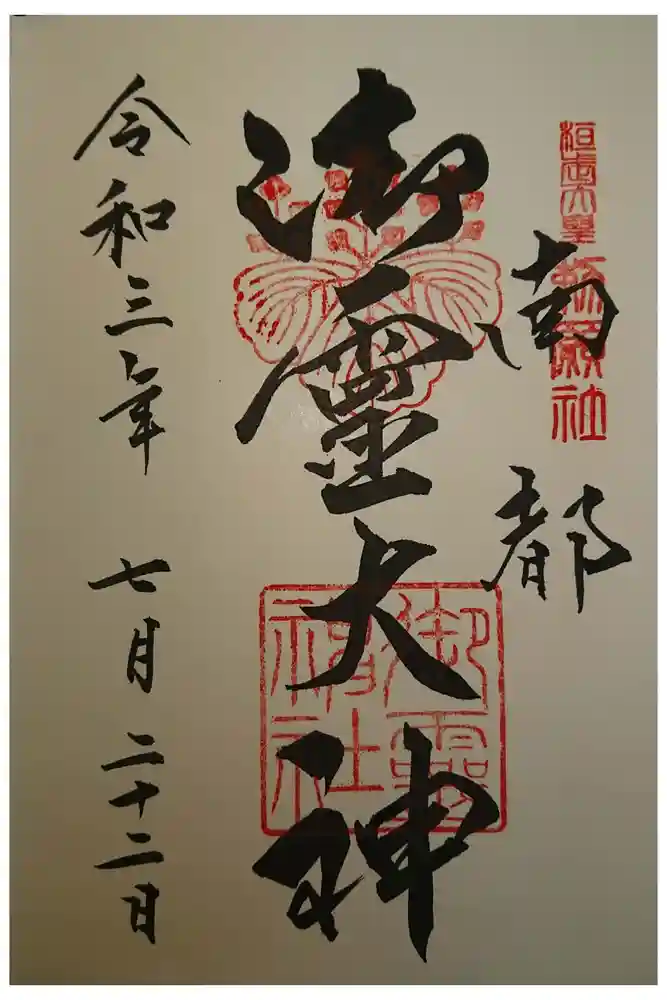 桓武天皇勅願社
南都
御霊大神
御靈
神社
令和三年 七月 二十二日